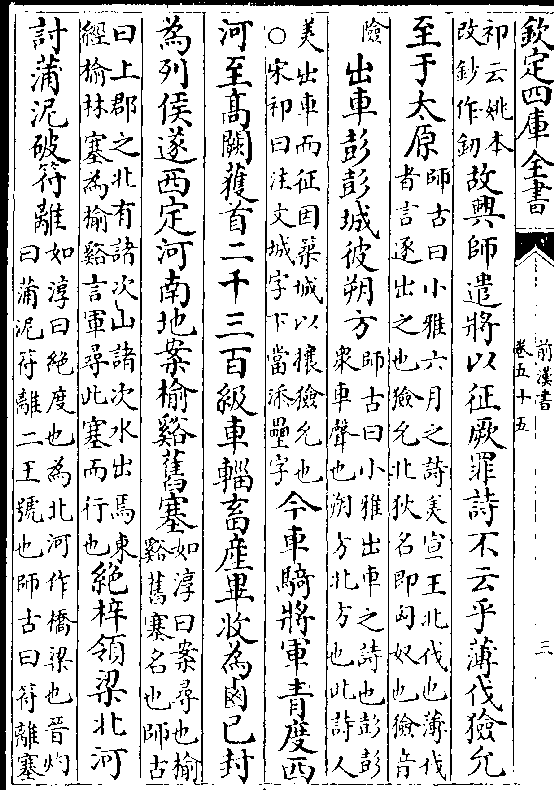 欽定四庫全書
前漢書
卷五十五
三
祁云姚本改鈔作釰故興師遣將以征厥罪詩不云乎薄伐獫允
至于太原師古曰小雅六月之詩美宣王北伐也薄伐者言逐出之也獫允北狄名即匈奴也獫音
險出車彭彭城彼朔方師古曰小雅出車之詩也彭彭衆車聲也朔方北方也此詩人
美出車而征因築城以攘獫允也○宋祁曰注文城字下當添壘字今車騎將軍青度西
河至高闕獲首二千三百級車輜畜產畢收為鹵已封
為列侯遂西定河南地案榆谿舊塞如淳曰案尋也榆谿舊塞名也師古
曰上郡之北有諸次山諸次水出焉東經榆林塞為榆谿言軍尋此塞而行也絕梓領梁北河
討蒲泥破符離如淳曰絕度也為北河作橋梁也晉灼曰蒲泥符離二王號也師古曰符離塞